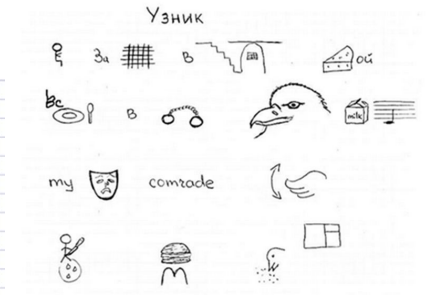 Узник
За в ой
Вс в milk
my comrade